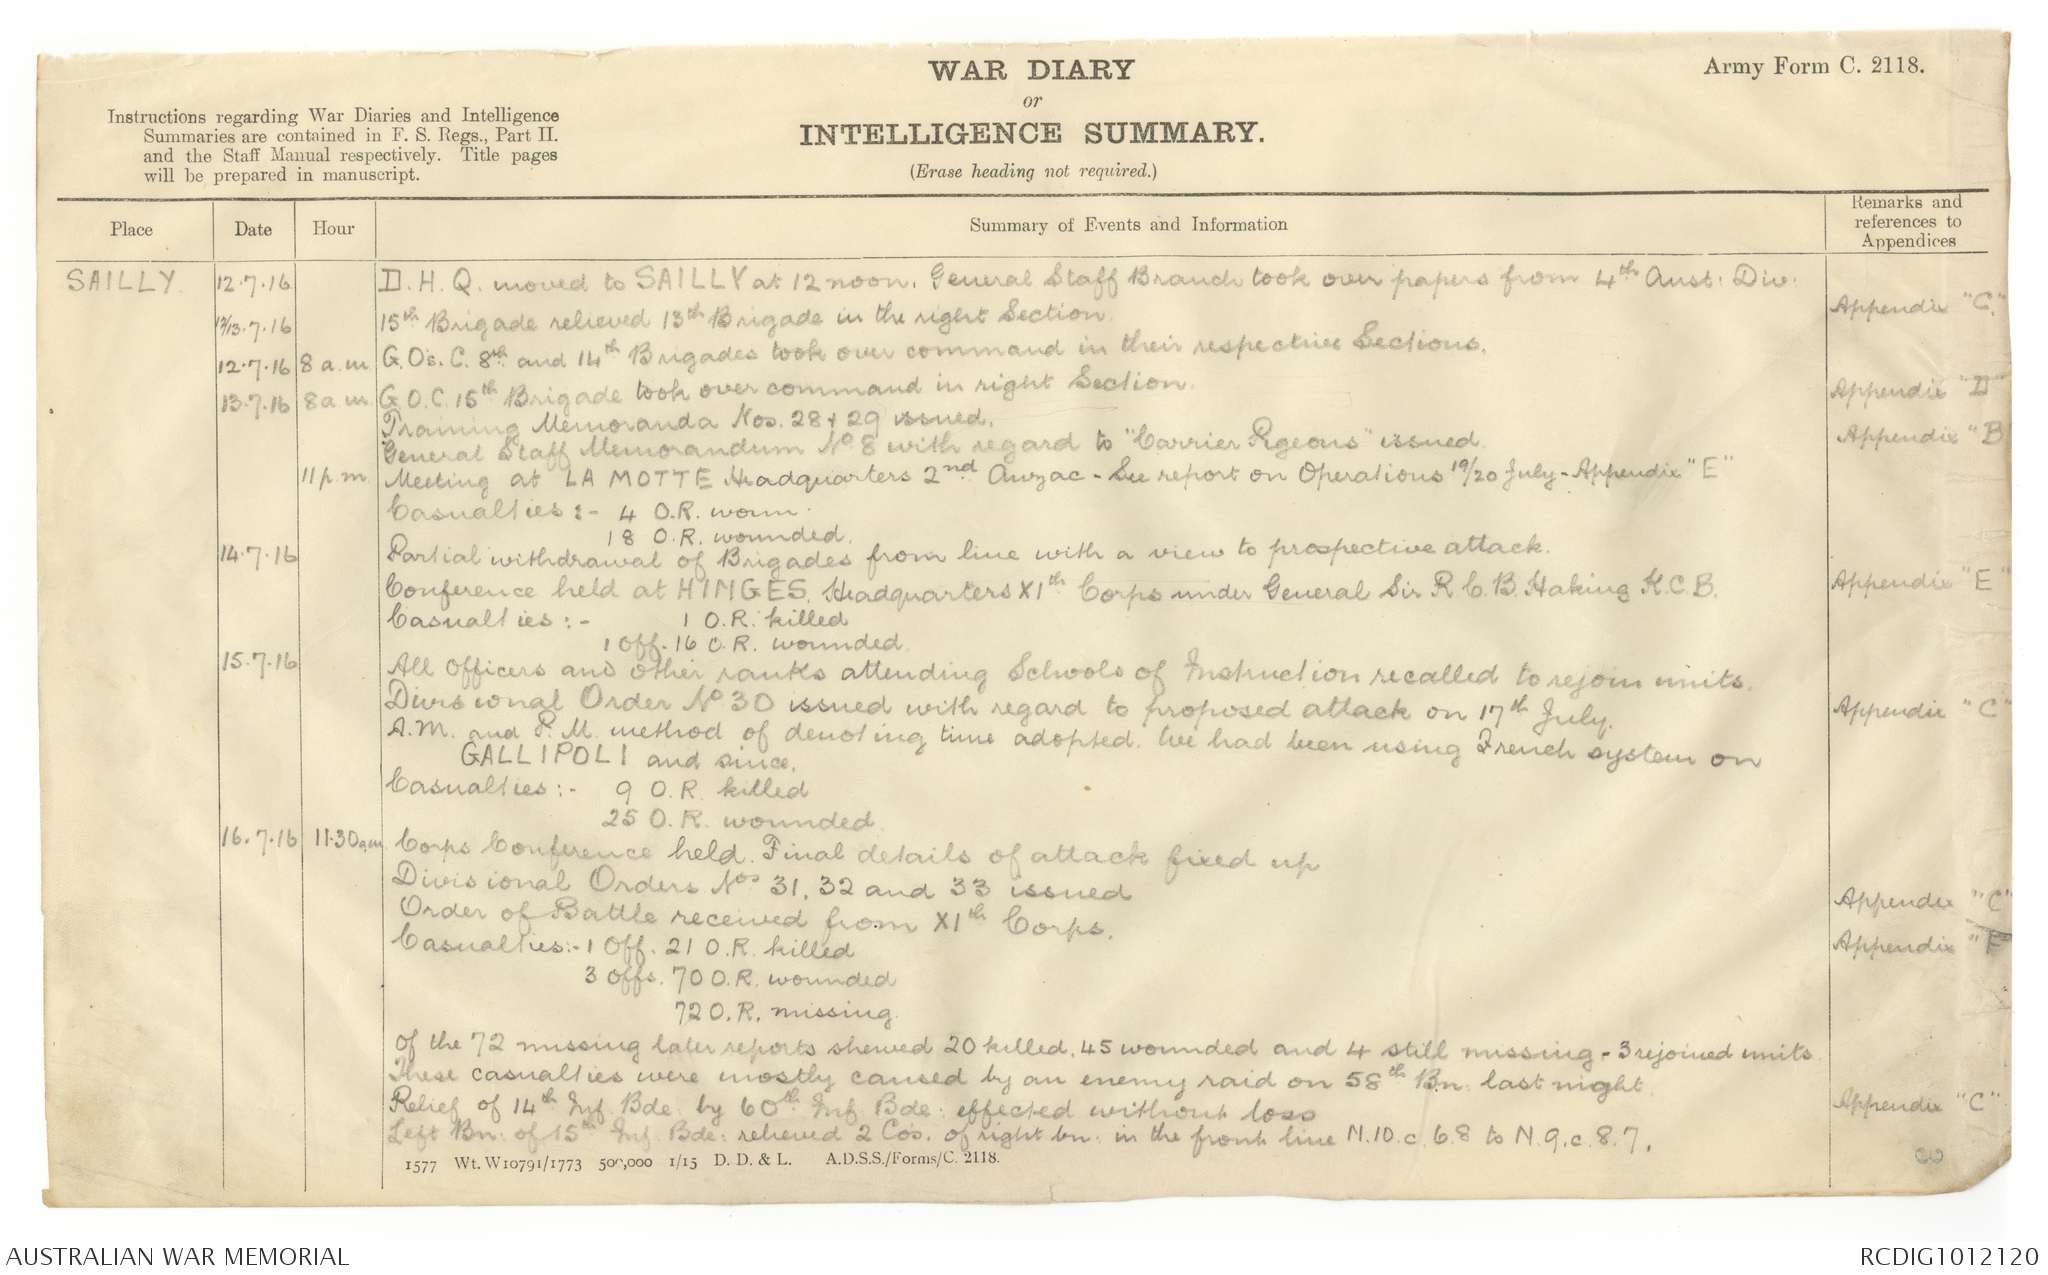 Army Form C. 2118.
WAR DIARY
or
INTELLIGENCE SUMMARY.
(Erase heading not required.)
Instructions regarding War Diaries and Intelligence
Summaries are contained in F. S. Regs., Part II.
and the Staff Manual respectively. Title pages
will be prepared in manuscript.
Place Date Hour Summary of Events and Information Remarks and references to Appendices
SAILLY 12.7.16 D. H. Q. moved to SAILLY at 12 noon. General Staff Branch took over papers from 4th Aust: Div.
12/13.7.16 15th Brigade relieved 13th Brigade in the right Section. Appendix "C"
12.7.16 8 a.m G.O's.C. 8th and 14th Brigades took over command in their respective Sections.
13.7.16 8 a.m G.O.C. 15th Brigade took over command in right Section. Appendix "D"
Training Memoranda Nos. 28 & 29 issued.
General Staff Memorandum No 8 with regard to "Carrier Pigeons" issued. Appendix "B
11 p.m Meeting at LA MOTTE Headquarters 2nd Anzac - See report on Operations 19/20 July - Appendix "E"
Casualties :- 4 O.R.
18 O.R. wounded.
14.7.16 Partial withdrawal of Brigades from line with a view to prospective attack.
Conference held at HINGES, Headquarters XIth Corps under General Sir R C. B. Haking K.C.B. Appendix "E"
Casualties :- 1 O.R. killed
1 Off. 16 O.R. wounded.
15.7.16 All officers and other ranks attending Schools of Instruction recalled to rejoin units.
Divisional Order No 30 issued with regard to proposed attack on 17th July. Appendix "C"
A.M. and P.M. method of denoting time adopted. We had been using French system on
GALLIPOLI and since.
Casualties :- 9 O.R. killed
25 O.R. wounded.
16.7.16 11.30am Corps Conference held. Final details of attack fixed up
Divisional Orders Nos 31, 32 and 33 issued Appendix "C"
Order of Battle received from XIth Corps. Appendix "E
Casualties:- 1 Off. 21 O.R. killed
3 Offs. 70 O.R. wounded
72 O.R. missing.
Of the 72 missing later reports shewed 20 killed, 45 wounded and 4 still missing - 3 rejoined units.
These casualties were mostly caused by an enemy raid on 58th Bn: last night.
Relief of 14th Inf. Bde. by 60th Inf. Bde: effected without loss Appendix "C"
Left Bn: of 15th Inf. Bde: relieved 2 Co's. of right bn: in the front line N.10.c.6.8 to N.9.c.8.7.
1577 Wt. W10791/1773 500,000 1/15 D. D. & L. A.D.S.S./Forms/C. 2118.
AUSTRALIAN WAR MEMORIAL
RCDIG1012120